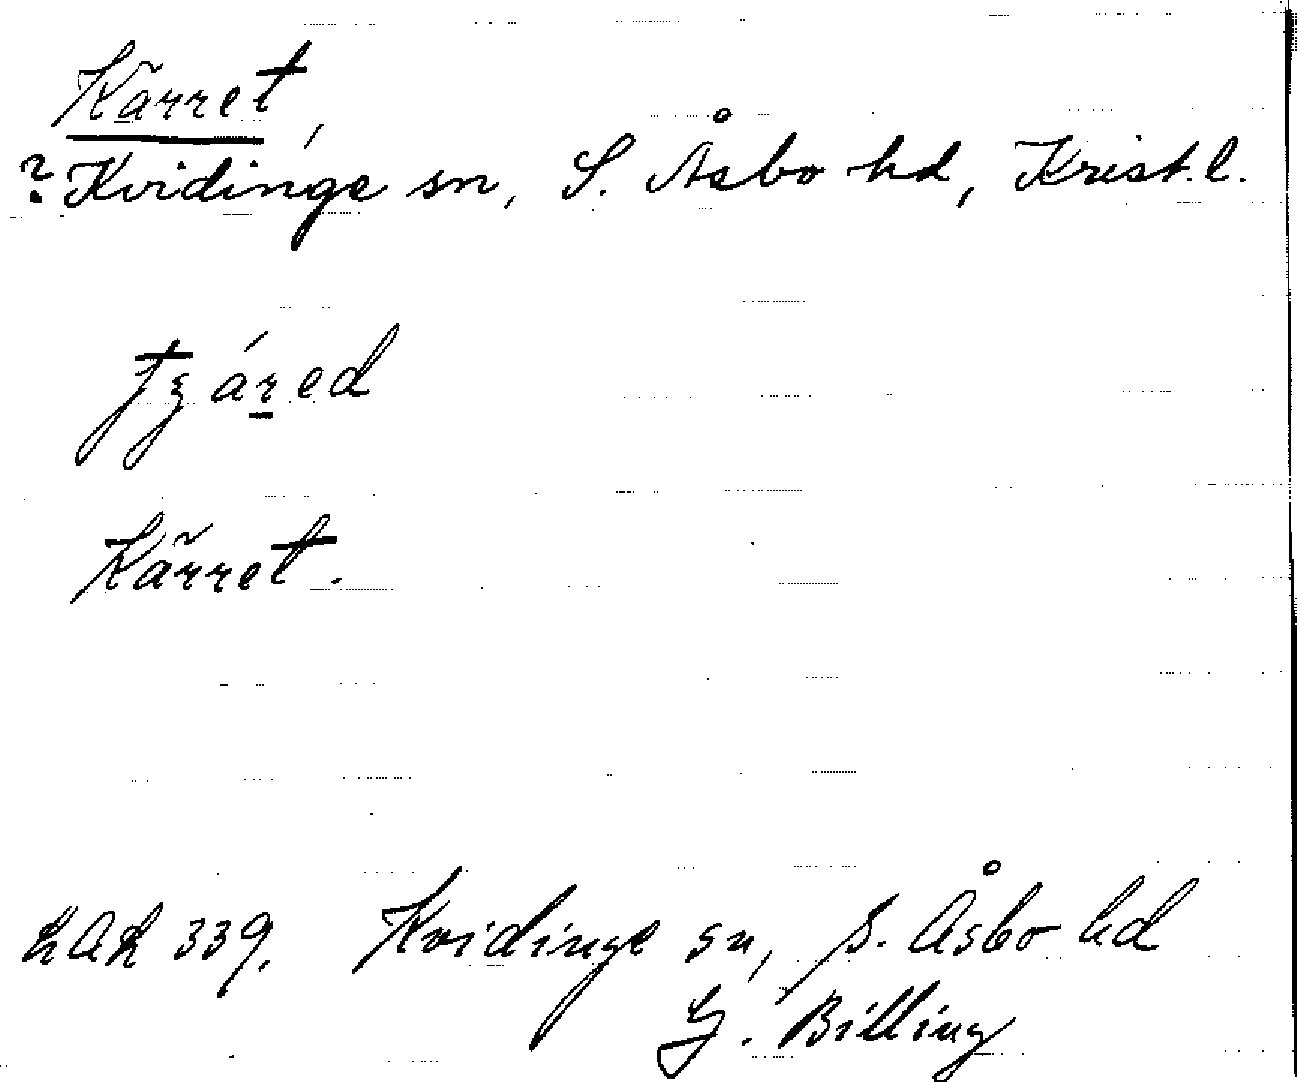 Kärret,
? Kvidinge sn, S. Åsbo hd, Krist. l.
Kärret.
LAL 339. Kvidinge sn, S. Åsbo hd
G. Billing